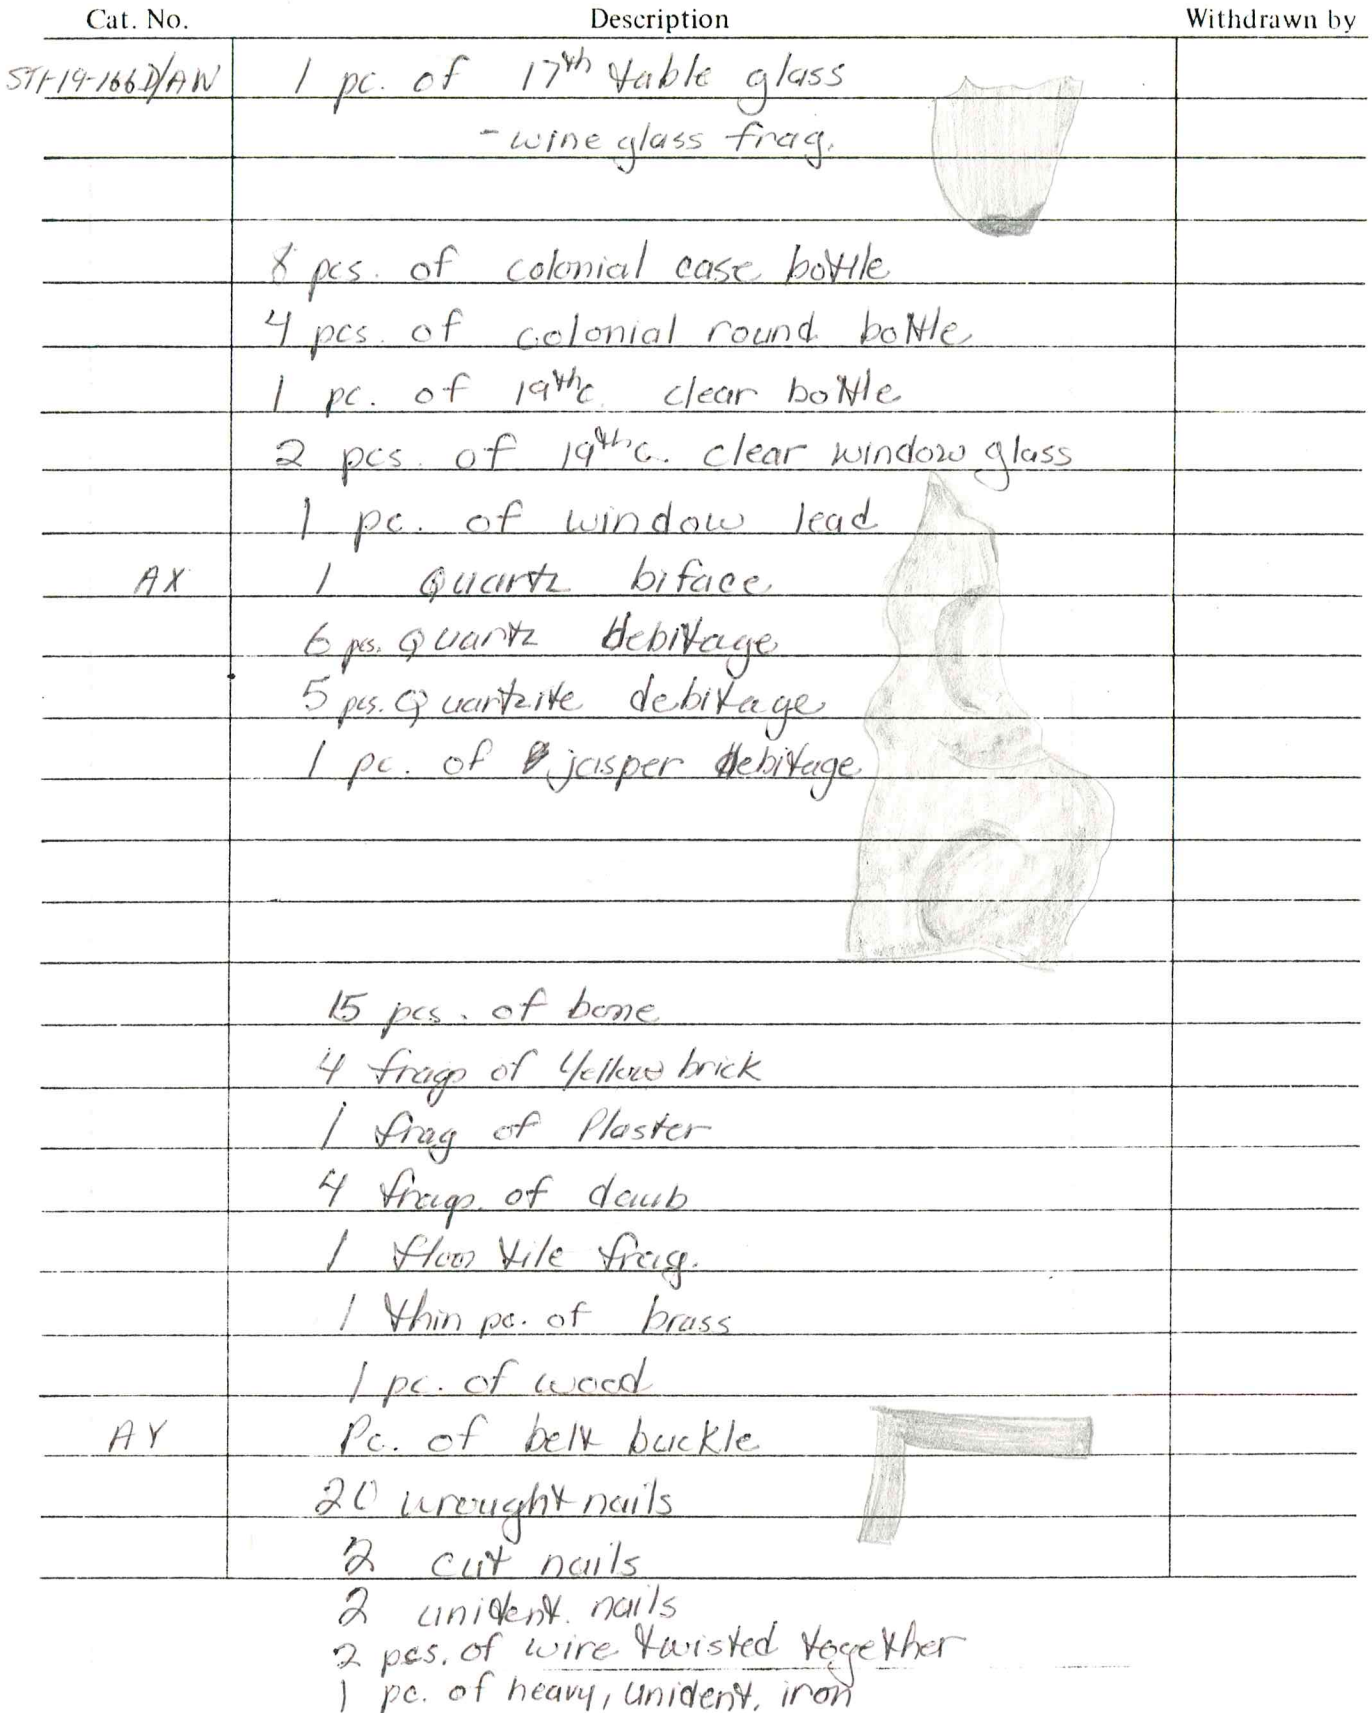 Cat. No. Description Withdrawn by
ST1-19-166D/AW 1 pc. of 17th table glass
- wine glass frag.
8 pcs. of colonial case bottle
4 pcs. of colonial round bottle
1 pc. of 19th c. clear bottle
2 pcs. of 19th c. clear window glass
1 pc. of window lead
AX 1 Quartz biface
6 pcs. Quartz debitage
5 pcs. Quartzite debitage
1 pc. of jasper debitage
15 pcs. of bone
4 frags of Yellow brick
1 frag of Plaster
4 frags. of daub
1 floor tile frag.
1 thin pc. of brass
1 pc. of wood
AY Pc. of belt buckle
20 wrought nails
2 cut nails
2 unident. nails
2 pcs. of wire twisted together
1 pc. of heavy, unident. iron